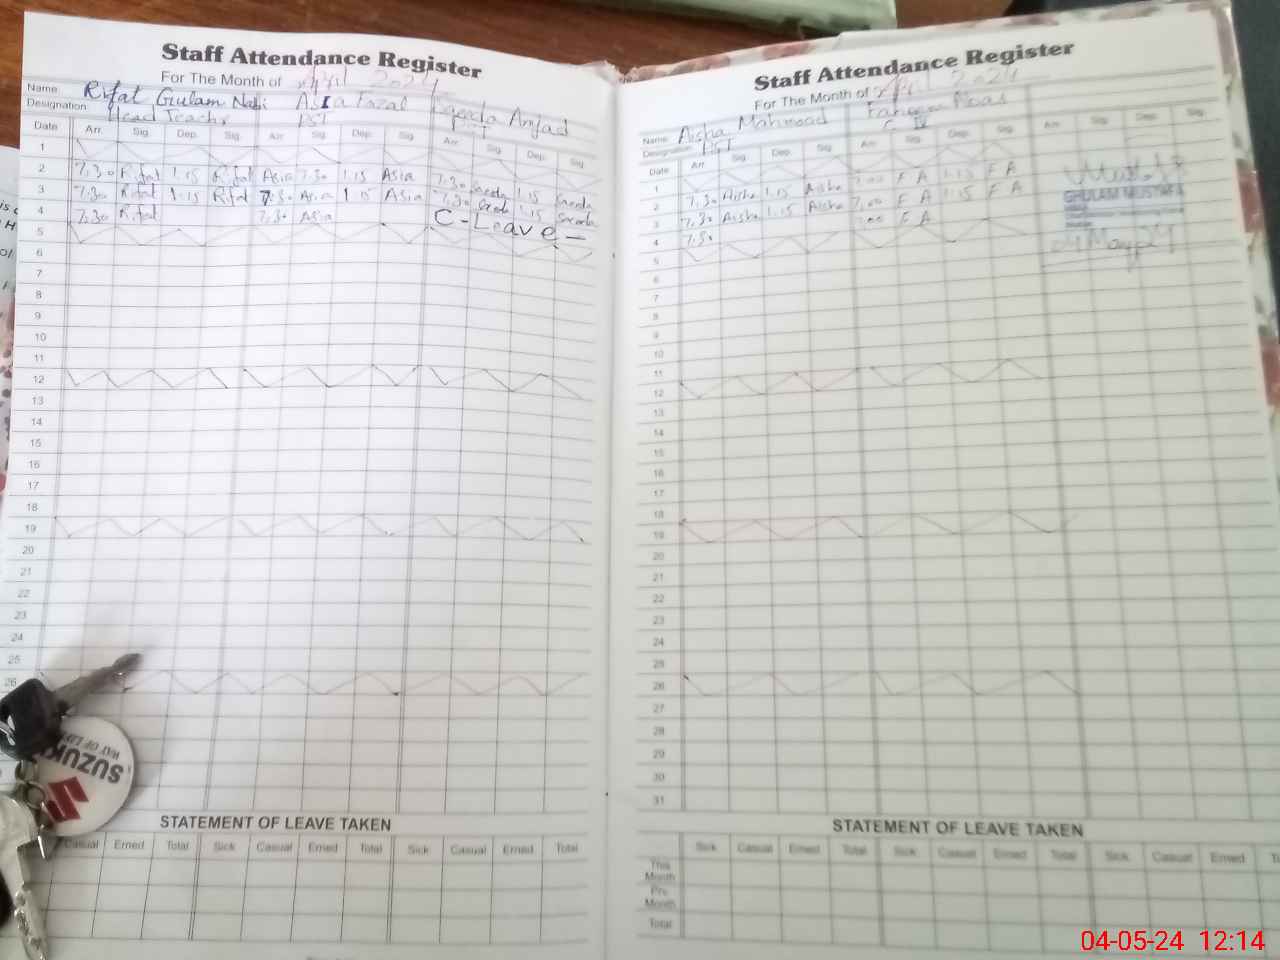 Staff Attendance Register
For The Month of April 2024
Name Rifat Gulam Nabi Asia Fazal Amjad
Designation Head Teachr PST PST
Date Arr. Sig. Dep. Sig. Arr. Sig. Dep. Sig. Arr. Sig. Dep. Sig.
1
2 7.30 Rifat 1.15 Rifat Asia 7.30 1.15 Asia 7.30 Saeeda 1.15 Saeeda
3 7.30 Rifat 1.15 Rifat 7.30 Asia 1.15 Asia 7.30 Saeeda 1.15 Saeeda
4 7.30 Rifat 7.30 Asia C-Leave-
5
6
7
8
9
10
11
12
13
14
15
16
17
18
19
20
21
22
23
24
25
26
STATEMENT OF LEAVE TAKEN
Casual Erned Total Sick Casual Erned Total Sick Casual Erned Total
SUZUKI
WAY OF LIFE
Staff Attendance Register
For The Month of April 2024
Name Aisha Mahmood
Designation PST C IV
Date Arr. Sig. Dep. Sig. Arr. Sig. Dep. Sig. Arr. Sig. Dep. Sig.
1
2 7.30 Aisha 1.15 Aisha 7.00 F A 1.15 F A
3 7.30 Aisha 1.15 Aisha 7.00 F A 1.15 F A
4 7.30 7.00 F A
5
6
7
8
9
10
11
12
13
14
15
16
17
18
19
20
21
22
23
24
25
26
27
28
29
30
31
GHULAM MUSTAFA
04 May 24
STATEMENT OF LEAVE TAKEN
Sick Casual Erned Total Sick Casual Erned Total Sick Casual Erned
This Month
Pre Month
Total
04-05-24 12:14